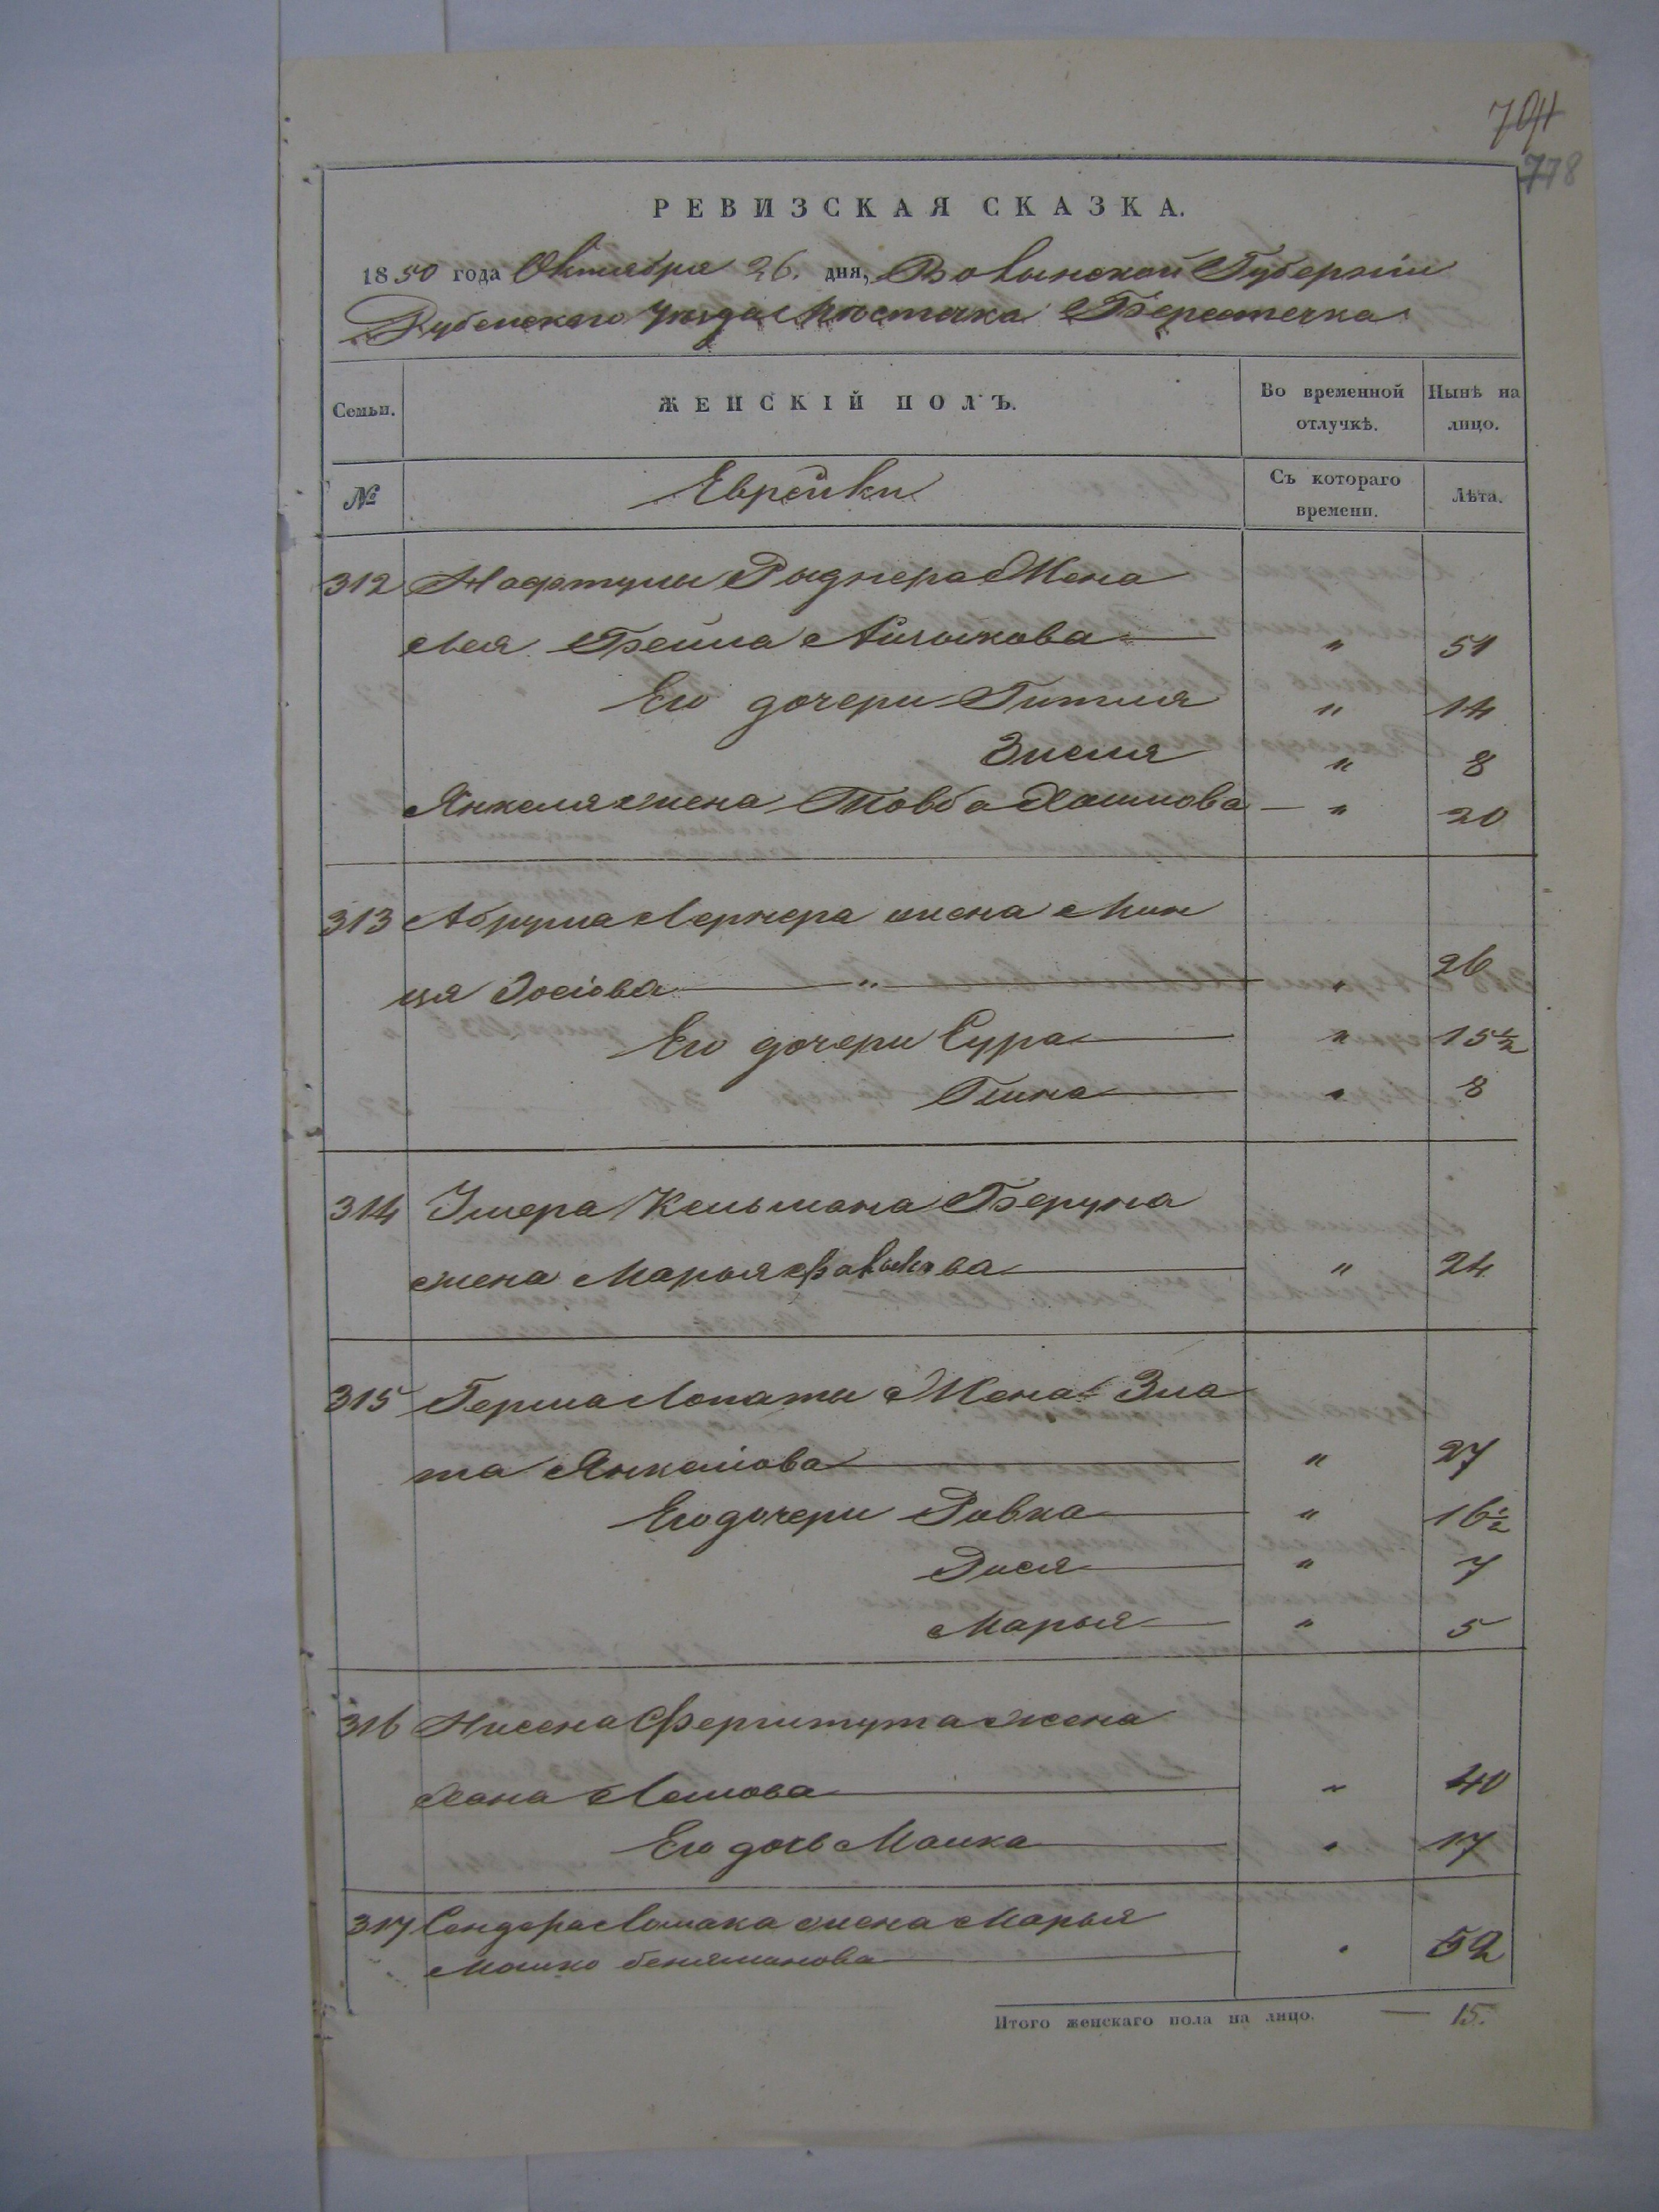 704
778
РЕВИЗСКАЯ СКАЗКА.
1850 года Октября 26. дня, Волынской Губерніи
Дубенскаго уезда Местечка Берестечка
Семьи.
ЖЕНСКІЙ ПОЛЪ.
Во временной отлучкѣ.
Нынѣ на лицо.
№
Еврейки
Съ котораго времени.
Лѣта.
312 Нафтулы Рыднера Жена
Лея Брейна " 51
Его дочери Гитля " 14
Зисля " 8
Янкеля жена Товба Хаимова " 20
313 Абрума Лернера жена Мин
ця Іосіова " " 26
Его дочери Сура " 15½
Гинка " 8
314 Кельмана Беруна
жена Марья " 24
315 Герша Лопаты Жена Зла
та Янкаліова " 27
Его дочери Ривка " 16½
Рися " 7
Марья " 5
316 Нисена жена
Хана " 40
Его дочь Малка " 17
317 Сендера Лошака жена Марья
беніаминова " 52
Итого женскаго пола на лицо. — 15.